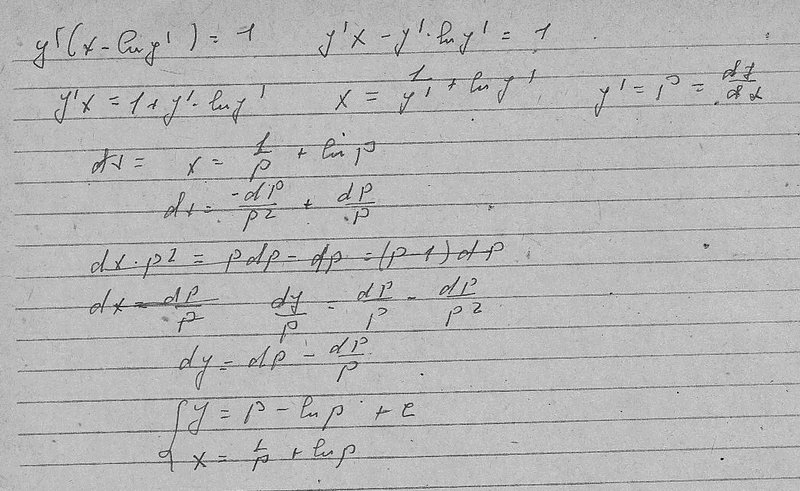 y'(x - ln y') = 1 y'x - y'·ln y' = 1
y'x = 1 + y'·ln y' x = 1/y' + ln y' y' = p = dy/dx
dx = x = 1/p + ln p
dx = -dp/p² + dp/p
dx·p² = pdp - dp = (p-1)dp
dx = dp/p² dy/p = dp/p - dp/p²
dy = dp - dp/p
{ y = p - ln p + c
x = 1/p + ln p